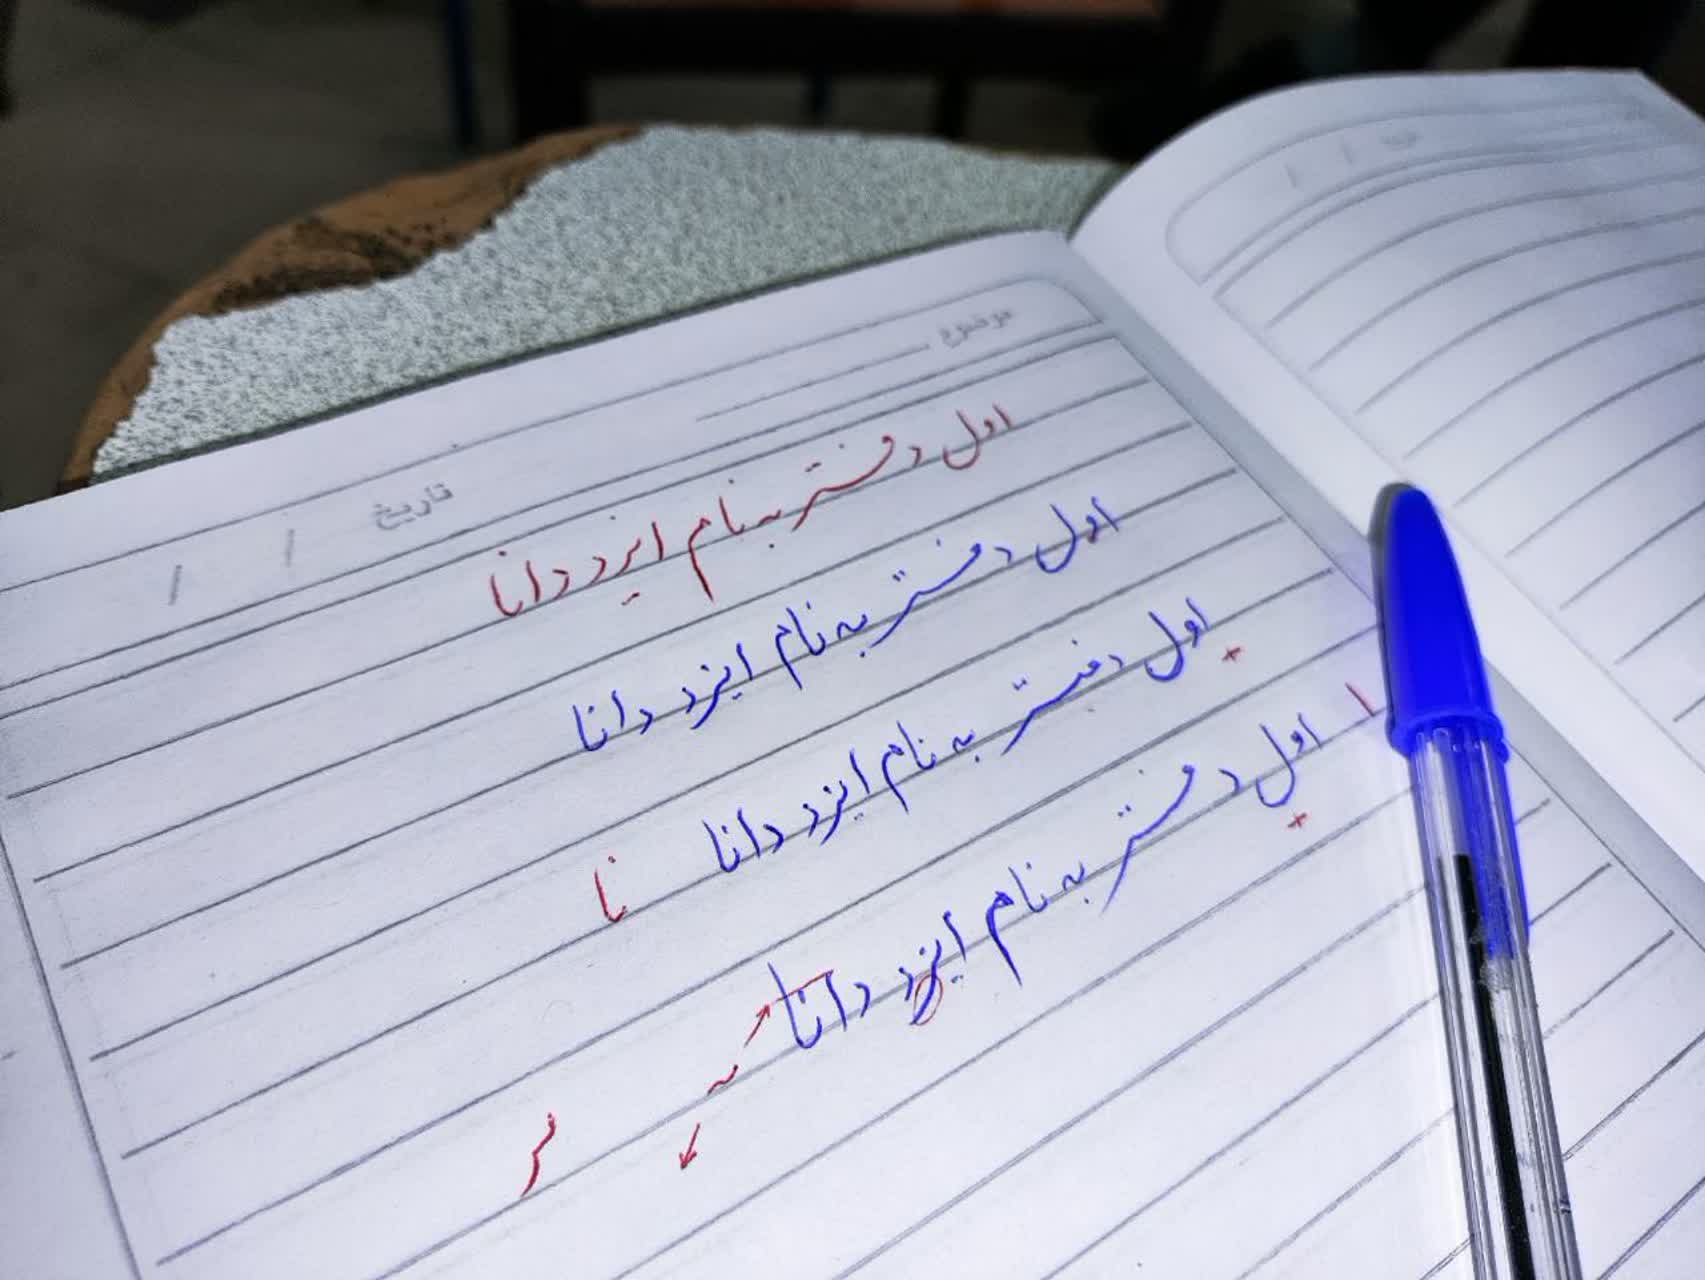 موضوع
تاریخ / /
اول دفتر به نام ایزد دانا
اول دفتر به نام ایزد دانا
اول دفتر به نام ایزد دانا
نا
ا
اول دفتر به نام ایزد دانا